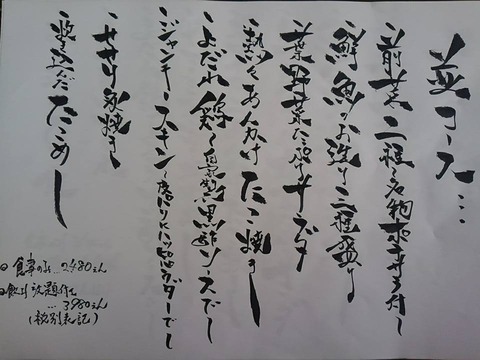 並コース…
・前菜二種〜名物ポテサラ付〜
・鮮魚のお造り三種盛り
・葉野菜たっぷりサラダ
・熱々あんかけたこ焼き〜
・よだれ鶏〜自家製黒酢ソースで〜
・ジャンキースキン〜
・せせり炙焼き〜
・炊き込んだたこめし
◎食事のみ…2480えん
◎飲み放題付き
…3980えん
(税別表記)